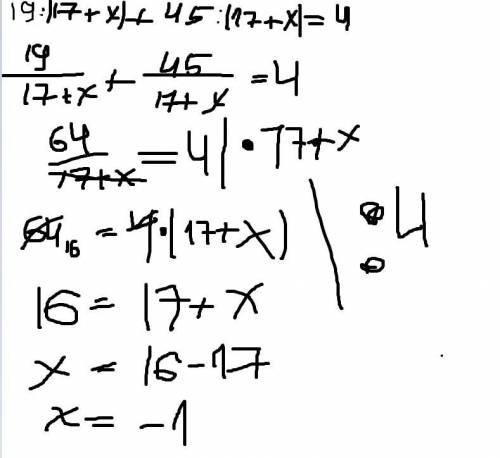 19:|17+x|+45:|17+x|=4
19/17+x + 45/17+x =4
64/17+x =4|•17+x
64 16 = 4•(17+x) / :4
16=17+x
x=16-17
x=-1